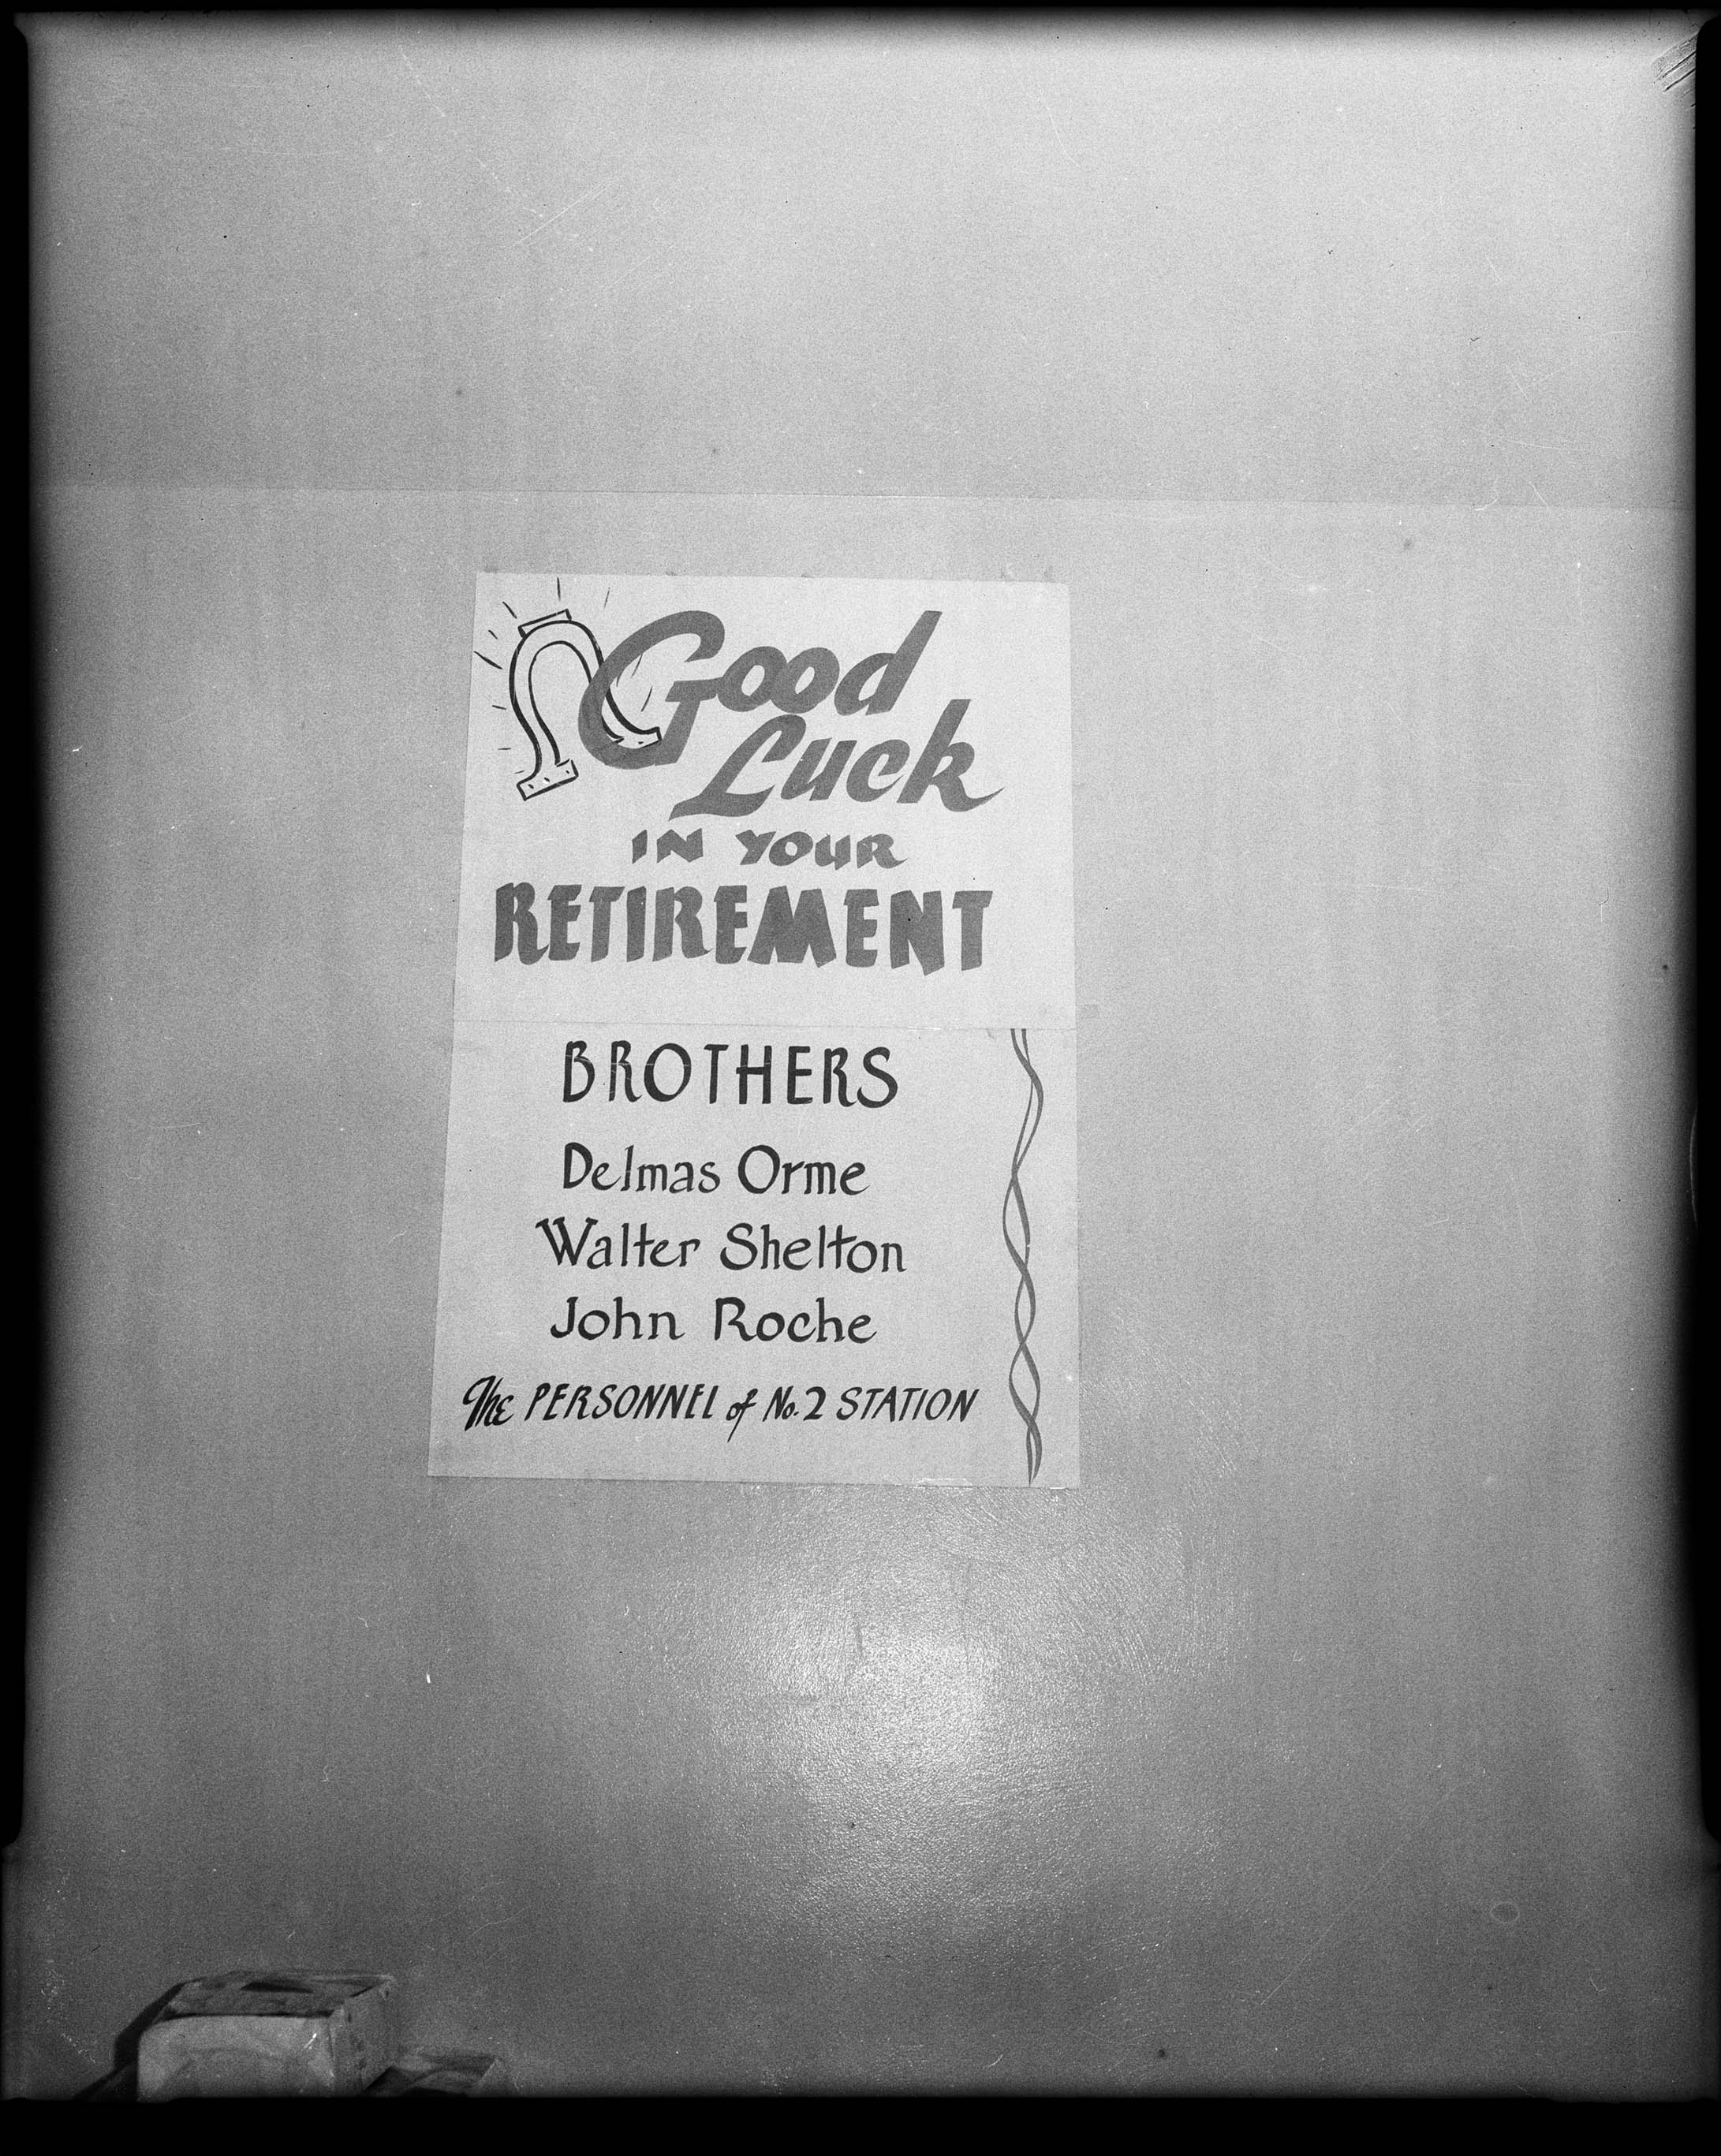 Good
Luck
IN YOUR
RETIREMENT
BROTHERS
Delmas Orme
Walter Shelton
John Roche
The PERSONNEL of No. 2 STATION